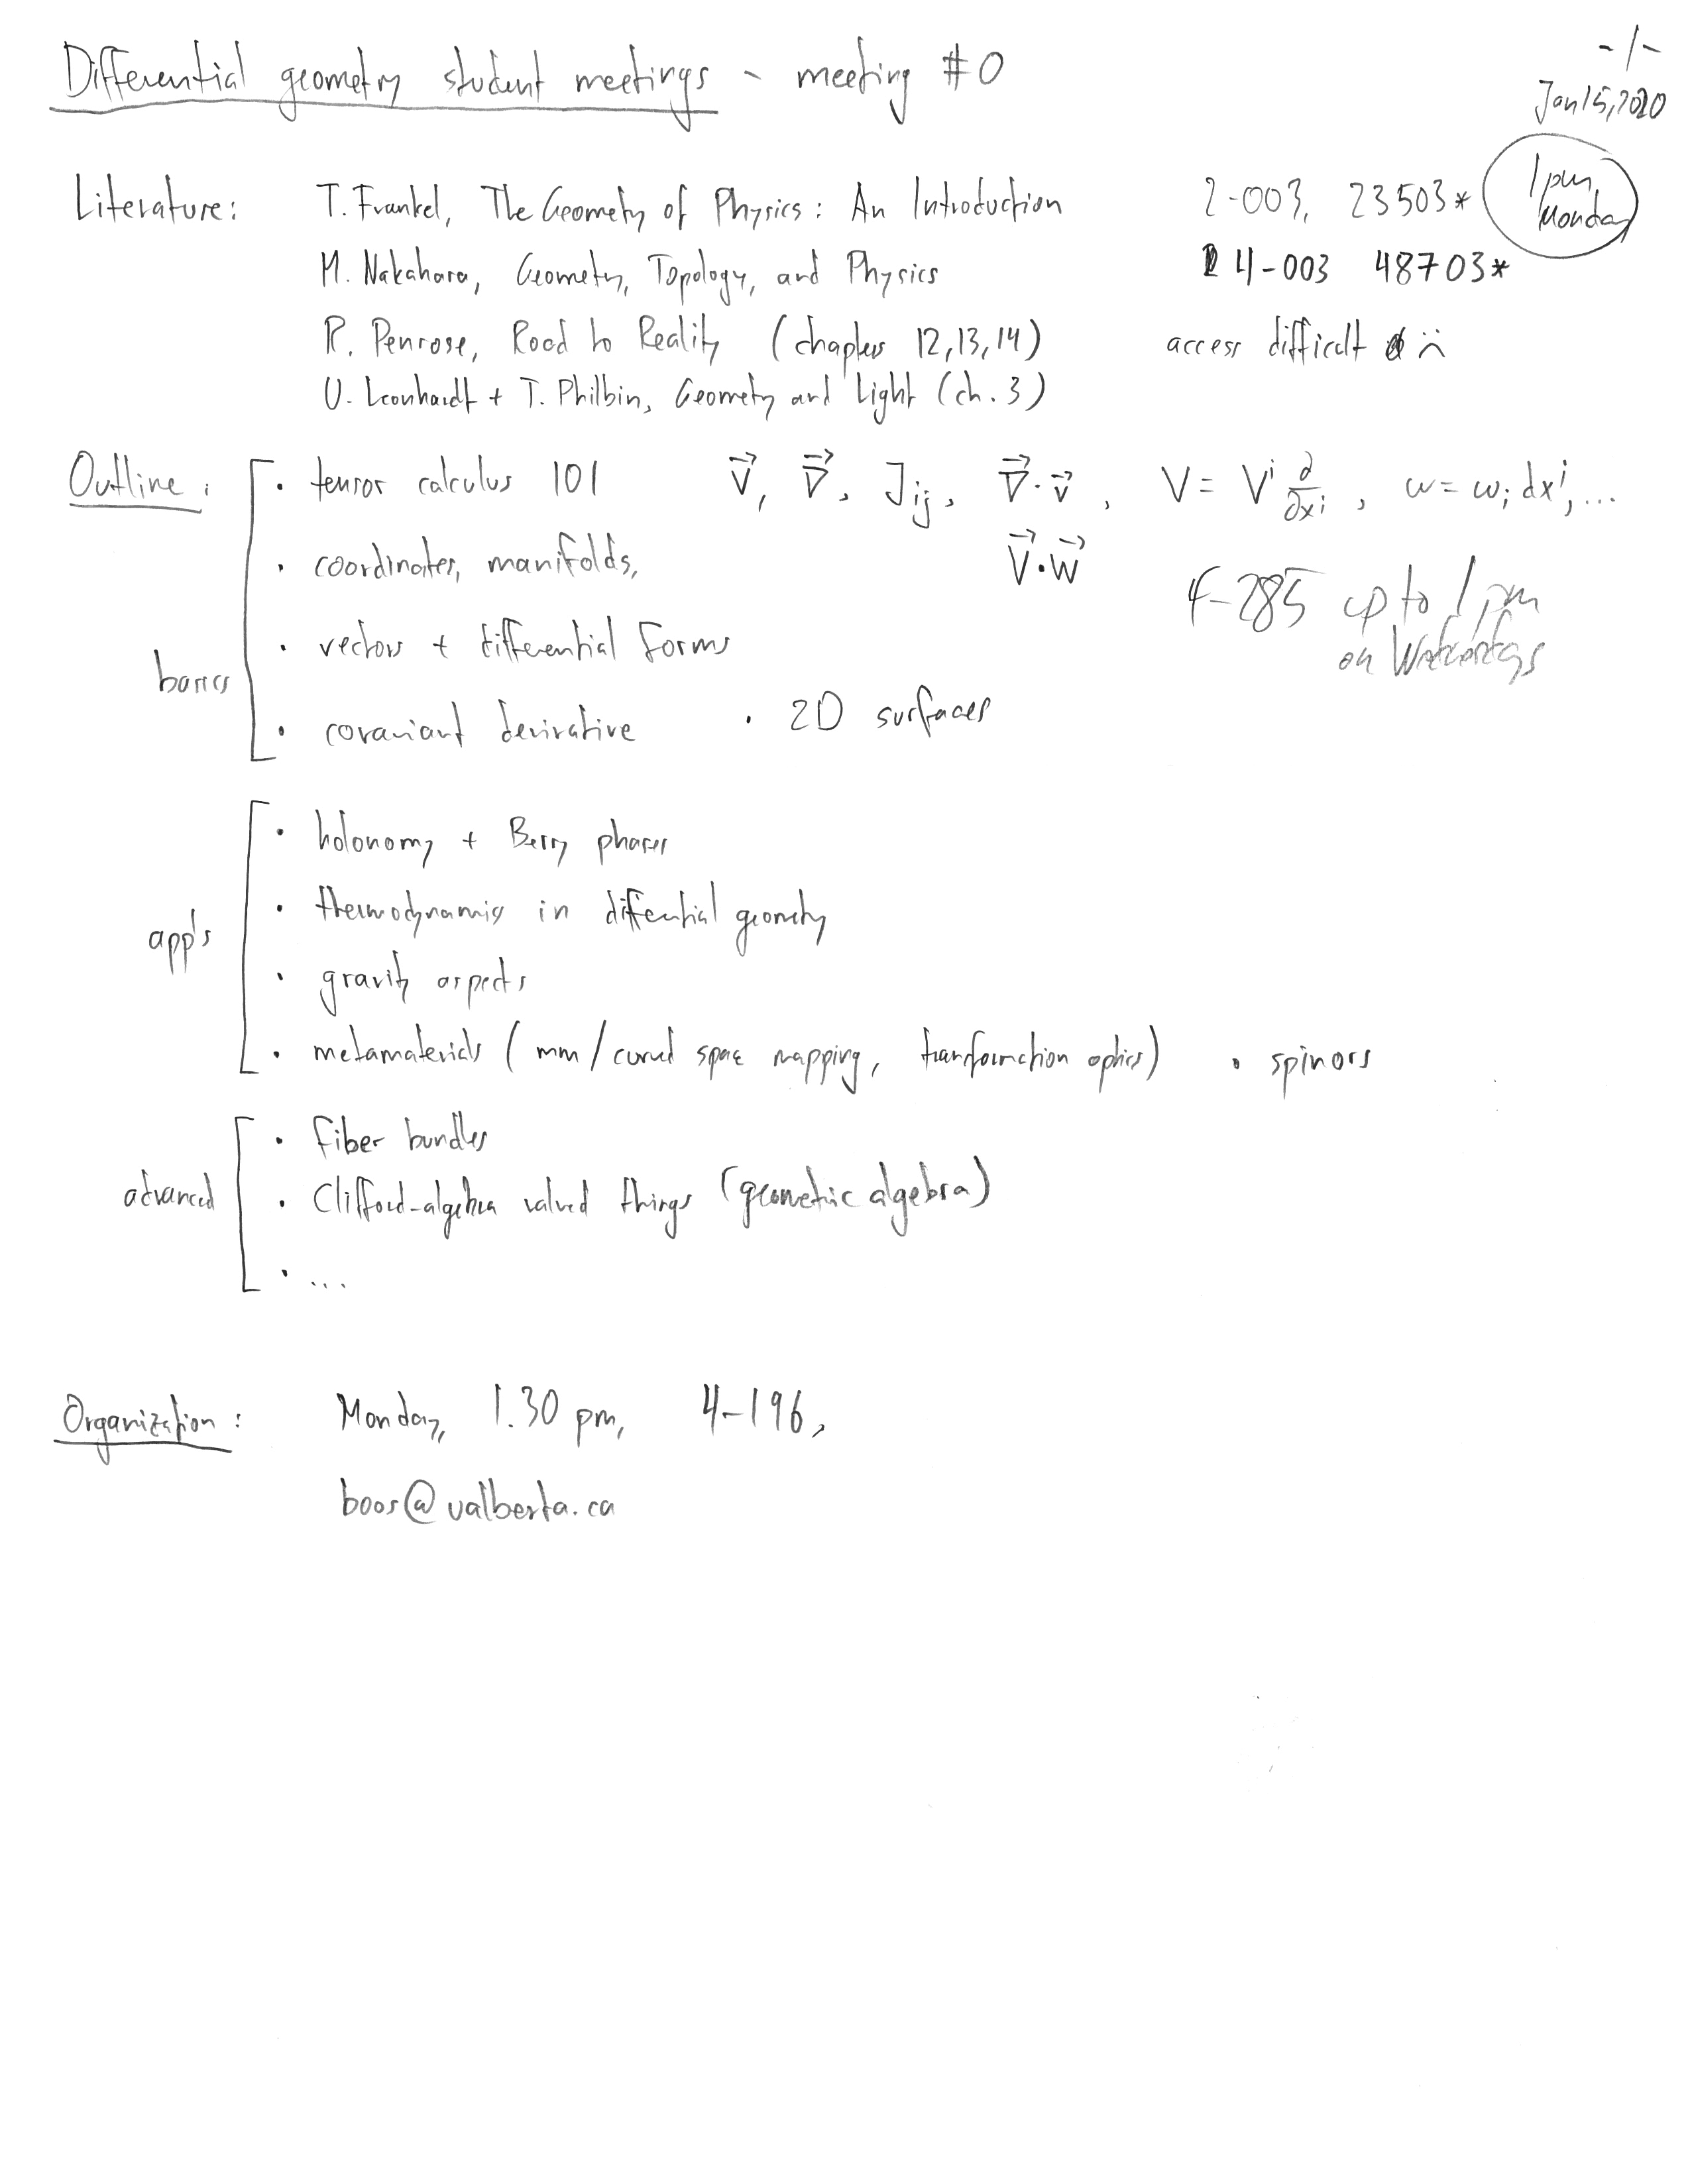 Differential geometry student meetings - meeting #0
-/-
Jan 15, 2020
Literature: T. Frankel, The Geometry of Physics: An Introduction
2-003, 23503*
1 pm,
Monday
M. Nakahara, Geometry, Topology, and Physics
4-003 48703*
R. Penrose, Road to Reality (chapters 12, 13, 14)
access difficult
U. Leonhardt + T. Philbin, Geometry and Light (ch. 3)
Outline:
basics
• tensor calculus 101 v⃗, ∇⃗, J_ij, ∇⃗·v⃗, V = V^i ∂/∂x^i, w = w_i dx^i, ...
• coordinates, manifolds, V⃗·W⃗
4-285 up to 1 pm
on
• vectors + differential forms
• covariant derivative • 2D surfaces
app's
• holonomy + Berry phases
• thermodynamics in diffential geometry
• gravity aspects
• metamaterials (mm/curved space mapping, transformation optics) • spinors
advanced
• fiber bundles
• Clifford-algebra valued things (geometric algebra)
• ...
Organization: Monday, 1.30 pm, 4-196,
boos@ualberta.ca